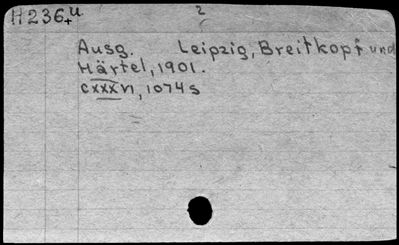 H236+u 2
Ausg. Leipzig, Breitkopf und
Härtel, 1901.
cxxxvi, 1074s